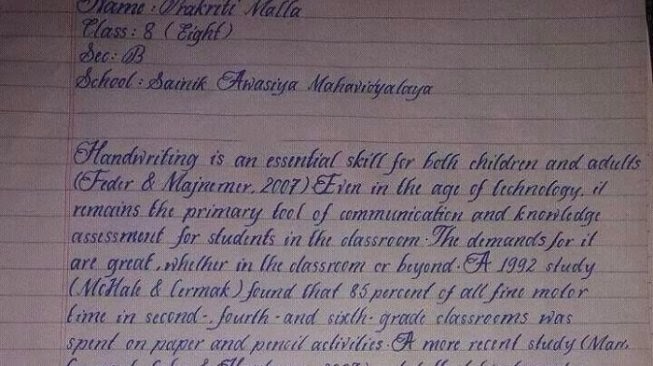 Name : Prakriti Malla
Class : 8 ( Eight )
Sec : B
School : Sainik Awasiya Mahavidyalaya
Handwriting is an essential skill for both children and adults
(Feder & Majnemer, 2007) Even in the age of technology, it
remains the primary tool of communication and knowledge
assessment for students in the classroom. The demands for it
are great, whether in the classroom or beyond. A 1992 study
(McHale & Cermak) found that 85 percent of all fine motor
time in second-, fourth- and sixth- grade classrooms was
spent on paper and pencil activities. A more recent study (Marr,